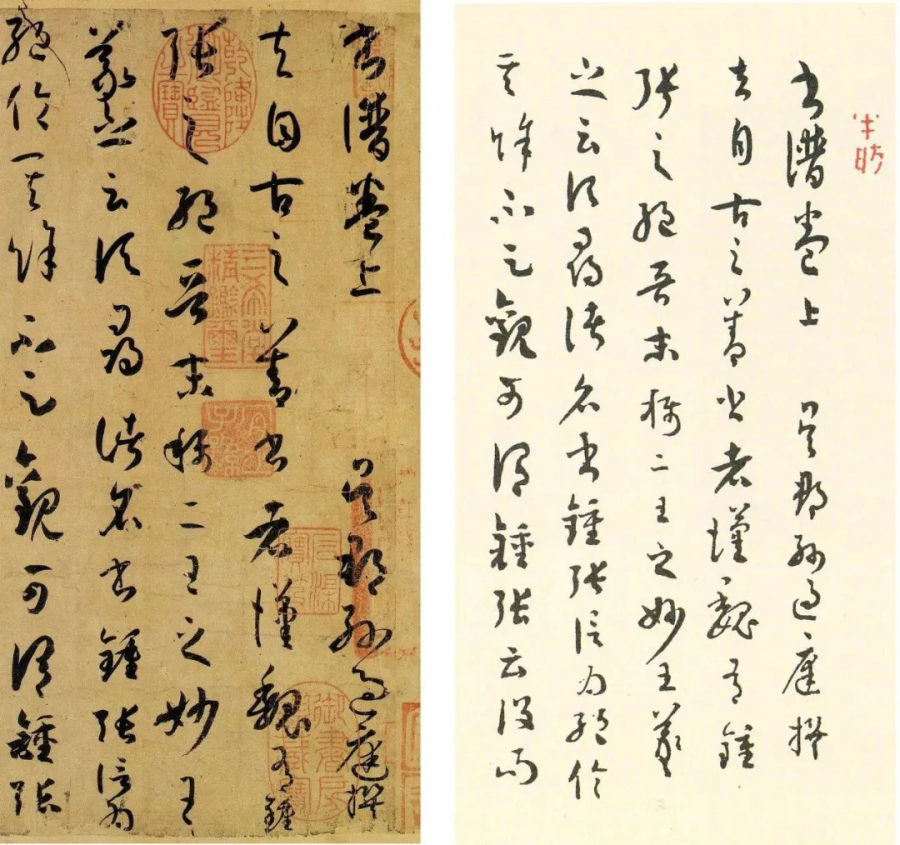 書譜卷上 吳郡孫過庭撰
夫自古之善書者漢魏有鍾
張之絕晉末稱二王之妙王
羲之云頃尋諸名書鍾張信為
絕倫其餘不足觀可謂鍾張
三希堂精鑑璽
宜子孫
書譜卷上 吳郡孫過庭撰
夫自古之善書者漢魏有鍾
張之絕晉末稱二王之妙王羲
之云頃尋諸名書鍾張信為絕倫
其餘不足觀可謂鍾張云沒而